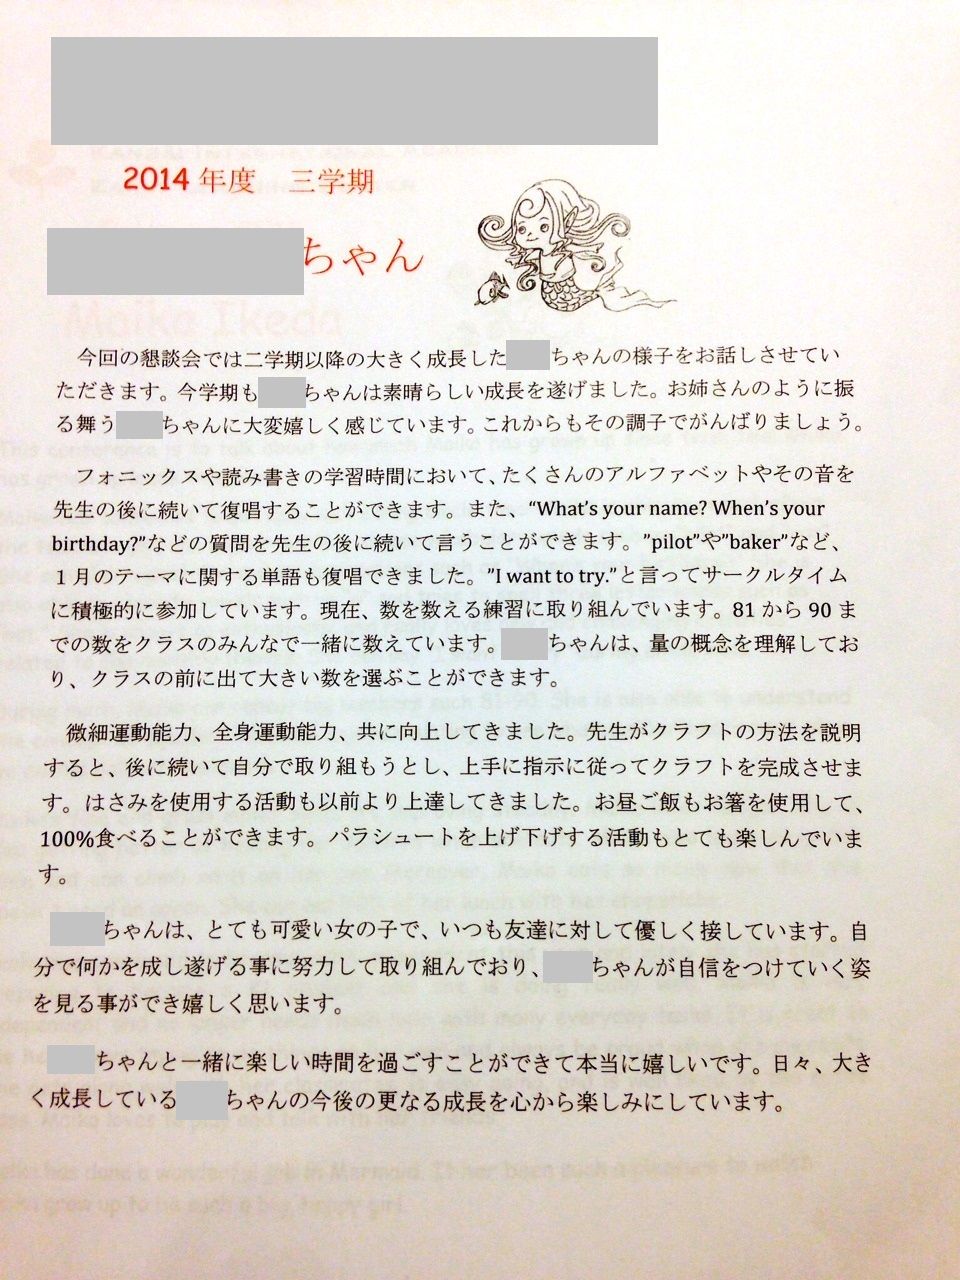 2014 年度　三学期
ちゃん
今回の懇談会では二学期以降の大きく成長した ちゃんの様子をお話しさせてい
ただきます。今学期も ちゃんは素晴らしい成長を遂げました。お姉さんのように振
る舞う ちゃんに大変嬉しく感じています。これからもその調子でがんばりましょう。
フォニックスや読み書きの学習時間において、たくさんのアルファベットやその音を
先生の後に続いて復唱することができます。また、“What’s your name? When’s your
birthday?”などの質問を先生の後に続いて言うことができます。”pilot”や”baker”など、
１月のテーマに関する単語も復唱できました。”I want to try.”と言ってサークルタイム
に積極的に参加しています。現在、数を数える練習に取り組んでいます。81 から 90 ま
での数をクラスのみんなで一緒に数えています。 ちゃんは、量の概念を理解してお
り、クラスの前に出て大きい数を選ぶことができます。
微細運動能力、全身運動能力、共に向上してきました。先生がクラフトの方法を説明
すると、後に続いて自分で取り組もうとし、上手に指示に従ってクラフトを完成させま
す。はさみを使用する活動も以前より上達してきました。お昼ご飯もお箸を使用して、
100%食べることができます。パラシュートを上げ下げする活動もとても楽しんでいま
す。
ちゃんは、とても可愛い女の子で、いつも友達に対して優しく接しています。自
分で何かを成し遂げる事に努力して取り組んでおり、 ちゃんが自信をつけていく姿
を見る事ができ嬉しく思います。
ちゃんと一緒に楽しい時間を過ごすことができて本当に嬉しいです。日々、大き
く成長している ちゃんの今後の更なる成長を心から楽しみにしています。